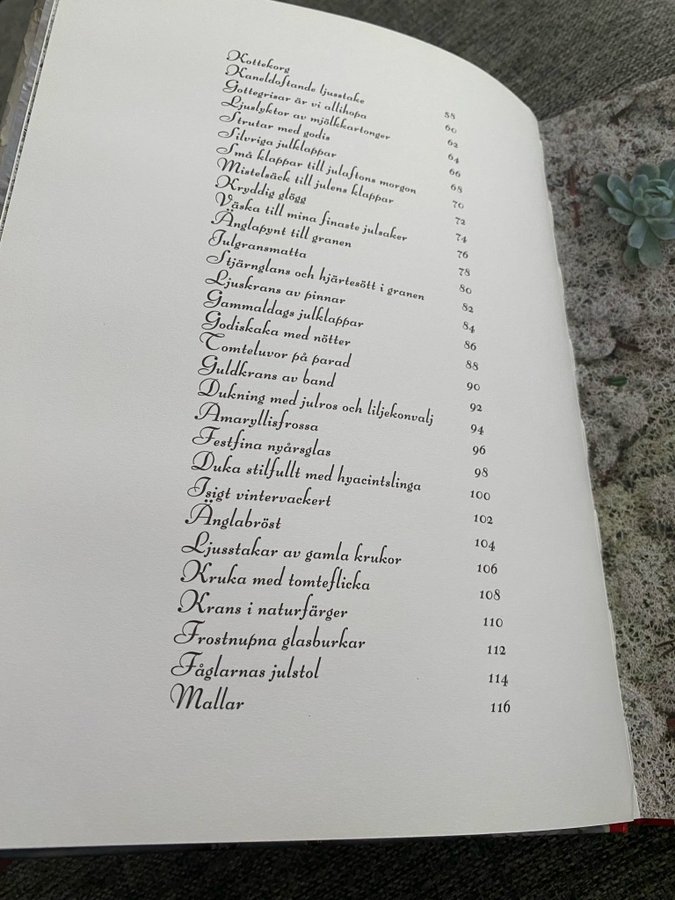 Kottekorg 58
Kaneldoftande ljusstake 60
Gottegrisar är vi allihopa 62
Ljuslyktor av mjölkkartonger 64
Strutar med godis 66
Silvriga julklappar 68
Små klappar till julaftons morgon 70
Mistelsäck till julens klappar 72
Kryddig glögg 74
Väska till mina finaste julsaker 76
Änglapynt till granen 78
Julgransmatta 80
Stjärnglans och hjärtesött i granen 82
Ljuskrans av pinnar 84
Gammaldags julklappar 86
Godiskaka med nötter 88
Tomteluvor på parad 90
Guldkrans av band 92
Dukning med julros och liljekonvalj 94
Amaryllisfrossa 96
Festfina nyårsglas 98
Duka stilfullt med hyacintslinga 100
Isigt vintervackert 102
Änglabröst 104
Ljusstakar av gamla krukor 106
Kruka med tomteflicka 108
Krans i naturfärger 110
Frostnupna glasburkar 112
Fåglarnas julstol 114
Mallar 116